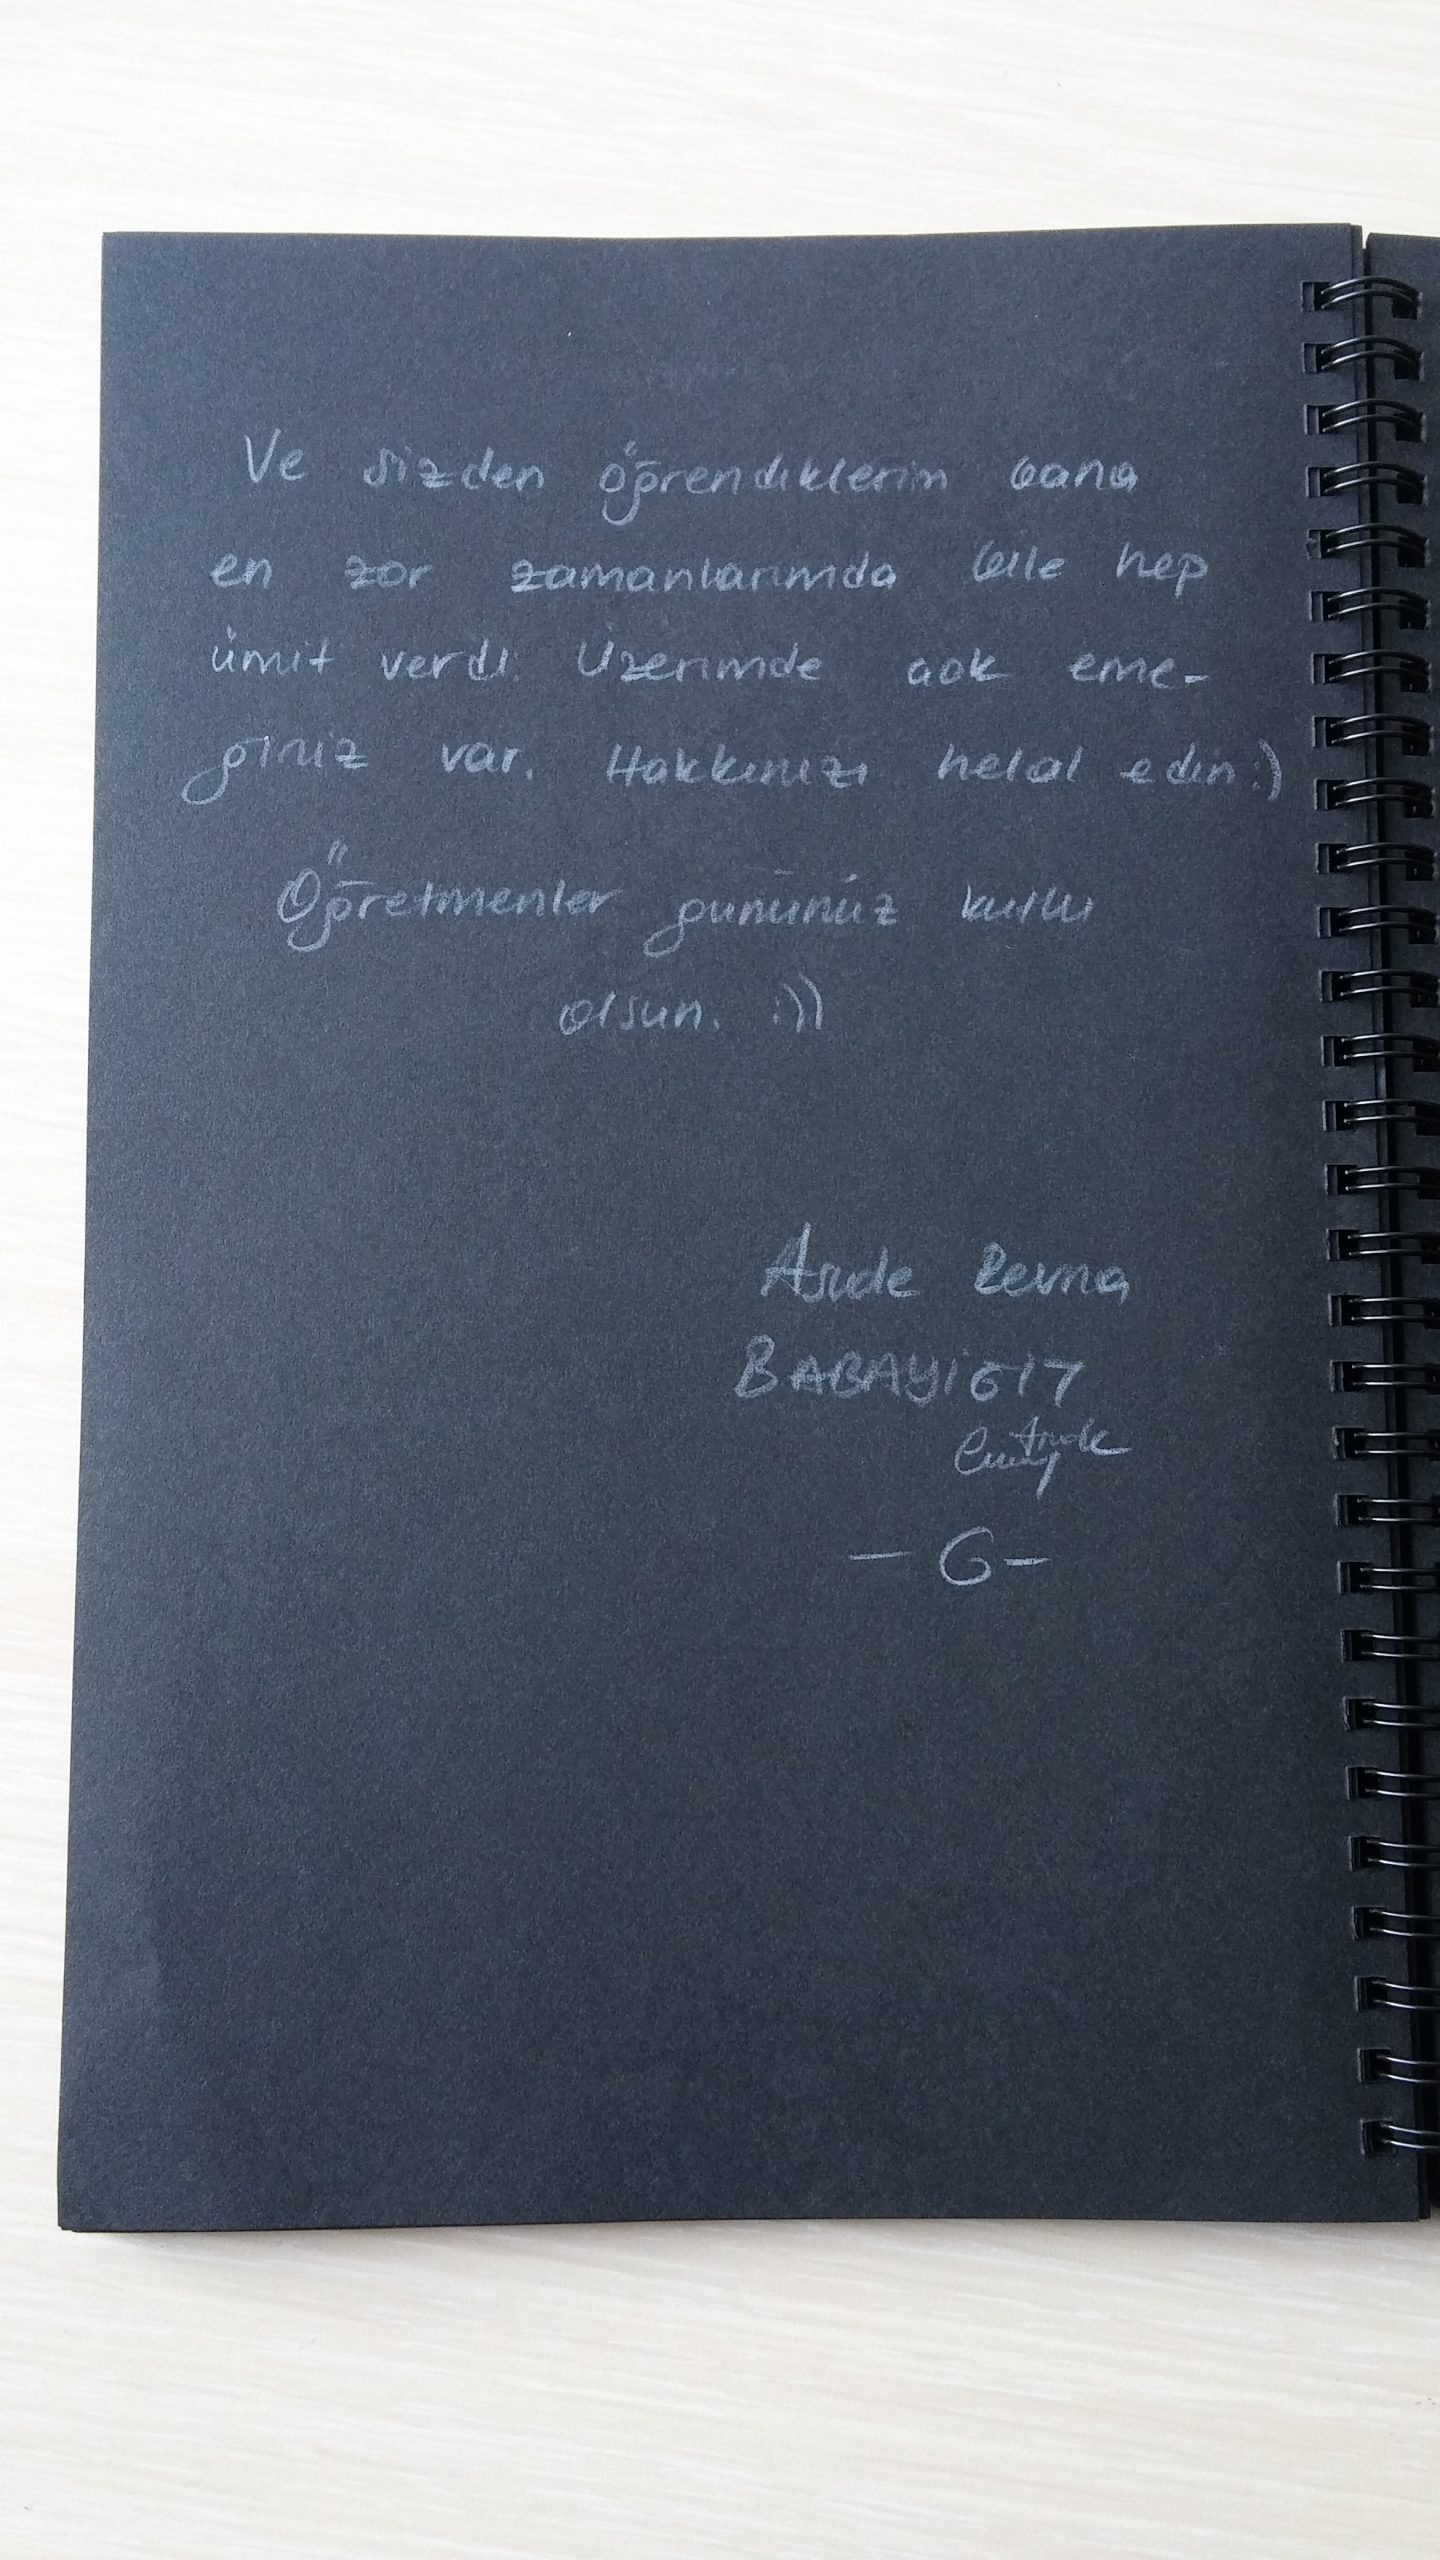 Ve sizden öğrendiklerim bana
en zor zamanlarımda bile hep
ümit verdi. Üzerimde çok eme-
ğiniz var. Hakkınızı helal edin :)
Öğretmenler gününüz kutlu
olsun. :))
Asude Revna
BABAYİGİT
- G -